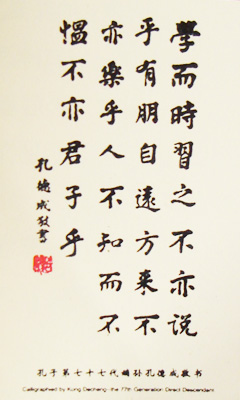 學而時習之不亦説
乎有朋自遠方来不
亦樂乎人不知而不
愠不亦君子乎
孔德成敬書
孔子第七十七代嫡孙孔德成敬书
Calligraphed by Kung Decheng- the 77th Generation Direct Descendant